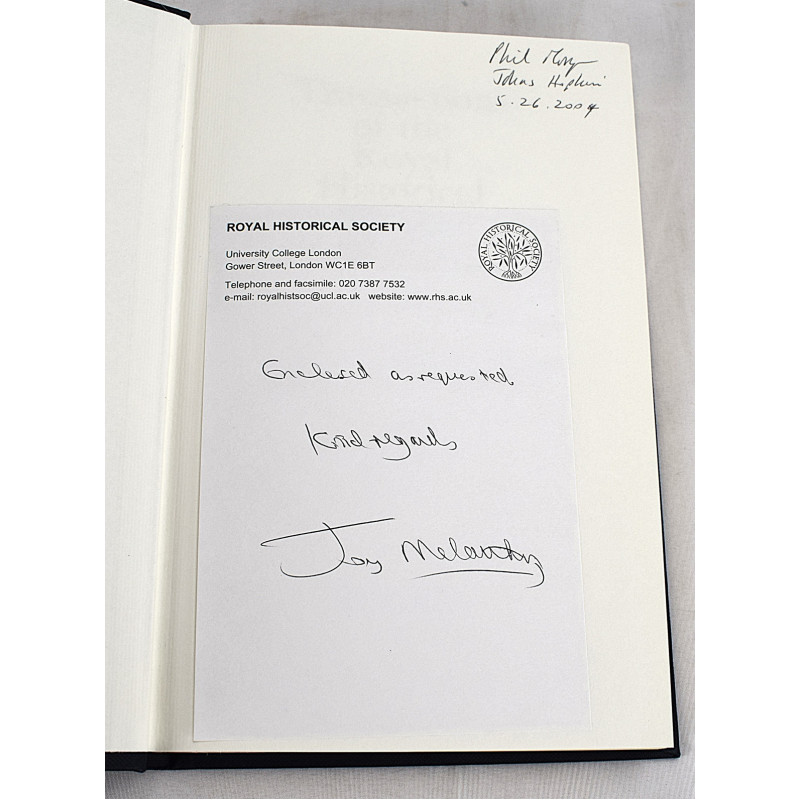 Phil
Johns Hopkins
5.26.2004
ROYAL HISTORICAL SOCIETY
ROYAL HISTORICAL SOCIETY
University College London
Gower Street, London WC1E 6BT
Telephone and facsimile: 020 7387 7532
e-mail: royalhistsoc@ucl.ac.uk website: www.rhs.ac.uk
Enclosed as requested
Kind regards
Joy